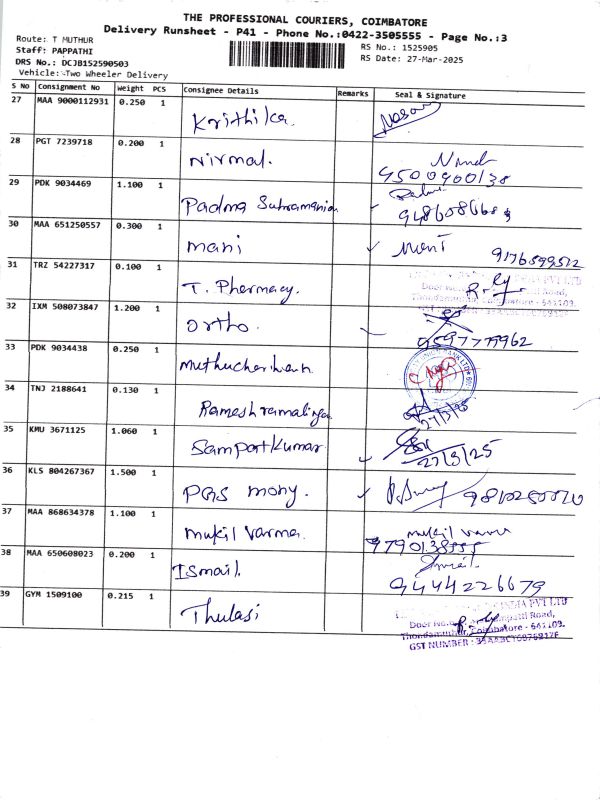 THE PROFESSIONAL COURIERS, COIMBATORE
Delivery Runsheet - P41 - Phone No.:0422-3505555 - Page No.:3
Route: T MUTHUR
RS No.: 1525905
Staff: PAPPATHI
RS Date: 27-Mar-2025
DRS No.: DCJB152590503
Vehicle: Two Wheeler Delivery
S No Consignment No Weight PCS Consignee Details Remarks Seal & Signature
27 MAA 9000112931 0.250 1 Krithika
28 PGT 7239718 0.200 1 Nirmal. 9500900138
29 PDK 9034469 1.100 1 Padma Subramanian
30 MAA 651250557 0.300 1 mani Mani 9176899522
31 TRZ 54227317 0.100 1 T. Pharmacy.
Coimbatore - 641109.
32 IXM 508073847 1.200 1 Ortho. 9597777962
33 PDK 9034438 0.250 1
34 TNJ 2188641 0.130 1 Rameshramalingam 27/3/25
35 KMU 3671125 1.060 1 SampatKumar 27/3/25
36 KLS 804267367 1.500 1 PGS mony.
37 MAA 868634378 1.100 1 mukil varma mukil varma
38 MAA 650608023 0.200 1 Ismail. 9444226679
39 GYM 1509100 0.215 1 Thulasi
INDIA PVT LTD
Road,
Thondamuthur, Coimbatore - 641109.
GST NUMBER :